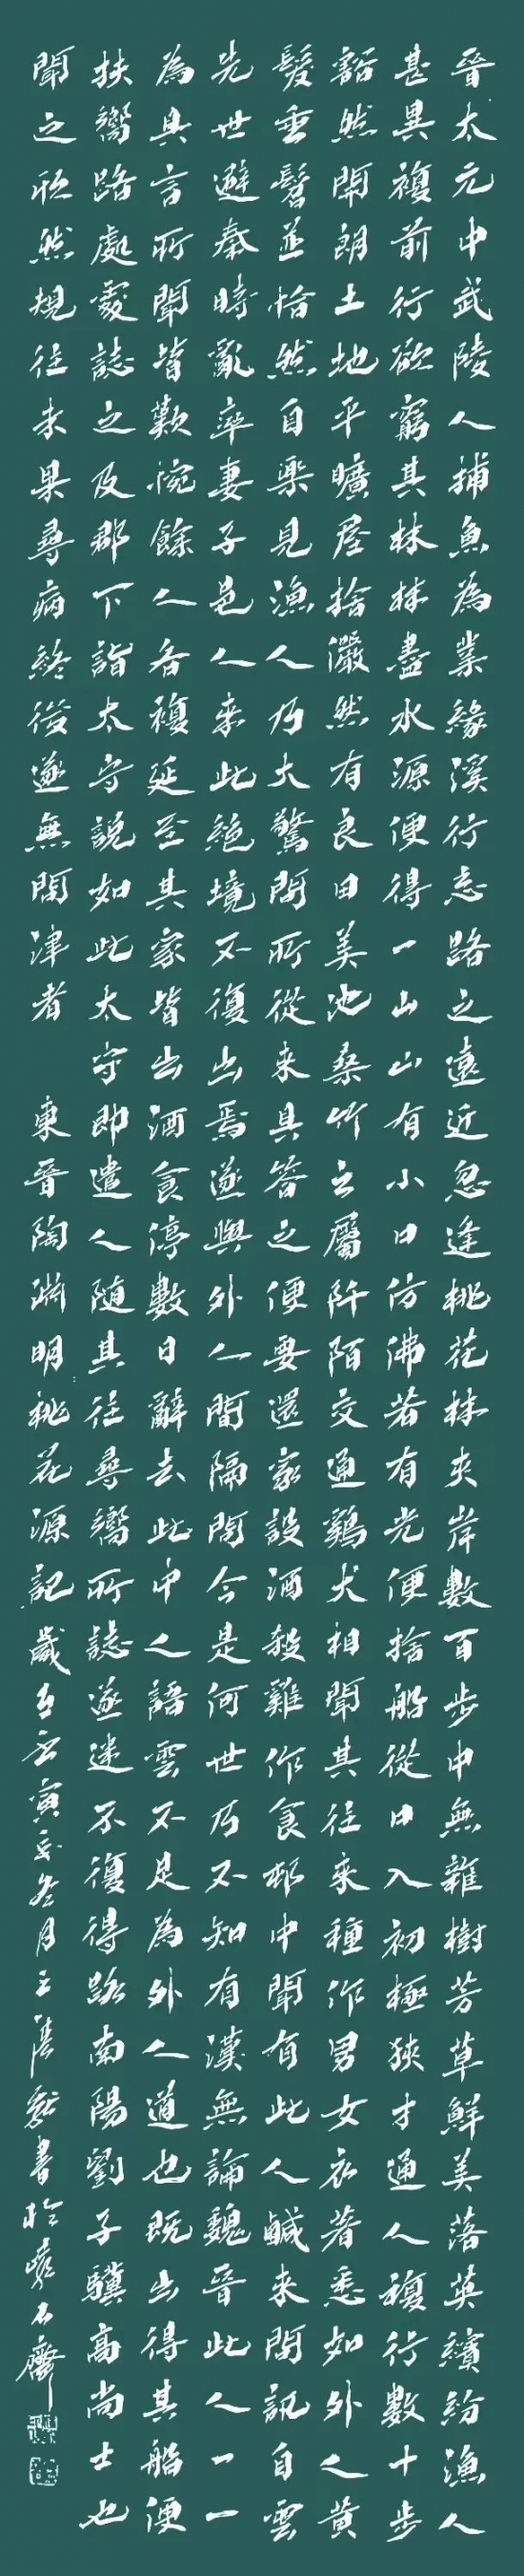 晉太元中武陵人捕魚為業緣溪行忘路之遠近忽逢桃花林夾岸數百步中無雜樹芳草鮮美落英繽紛漁人
甚異複前行欲窮其林林盡水源便得一山山有小口仿佛若有光便捨船從口入初極狹才通人複行數十步
豁然開朗土地平曠屋捨儼然有良田美池桑竹之屬阡陌交通鷄犬相聞其往來種作男女衣著悉如外人黃
髮垂髫並怡然自樂見漁人乃大驚問所從來具答之便要還家設酒殺雞作食邨中聞有此人鹹來問訊自雲
先世避秦時亂率妻子邑人來此絕境不復出焉遂與外人間隔問今是何世乃不知有漢無論魏晉此人一一
為具言所聞皆歎惋餘人各複延至其家皆出酒食停數日辭去此中人語雲不足為外人道也既出得其船便
扶嚮路處處誌之及郡下詣太守說如此太守即遣人隨其往尋嚮所誌遂迷不復得路南陽劉子驥高尚士也
聞之欣然規往未果尋病終後遂無問津者 東晉陶淵明桃花源記歲在寅冬月王書於石齋